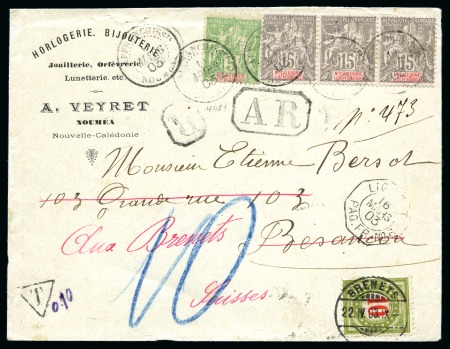 HORLOGERIE, BIJOUTERIE
Joaillerie, Orfèvrerie
Lunetterie, etc.
A. VEYRET
NOUMÉA
Nouvelle-Calédonie
5
15
15
15
R
AR
N° 473
Monsieur Etienne Bersot
103 Grande rue 103
Aux Brenets
Besançon
Suisse
10
T
0.10
LIG
16
MARS
03
BRENETS
22.IV.03
10